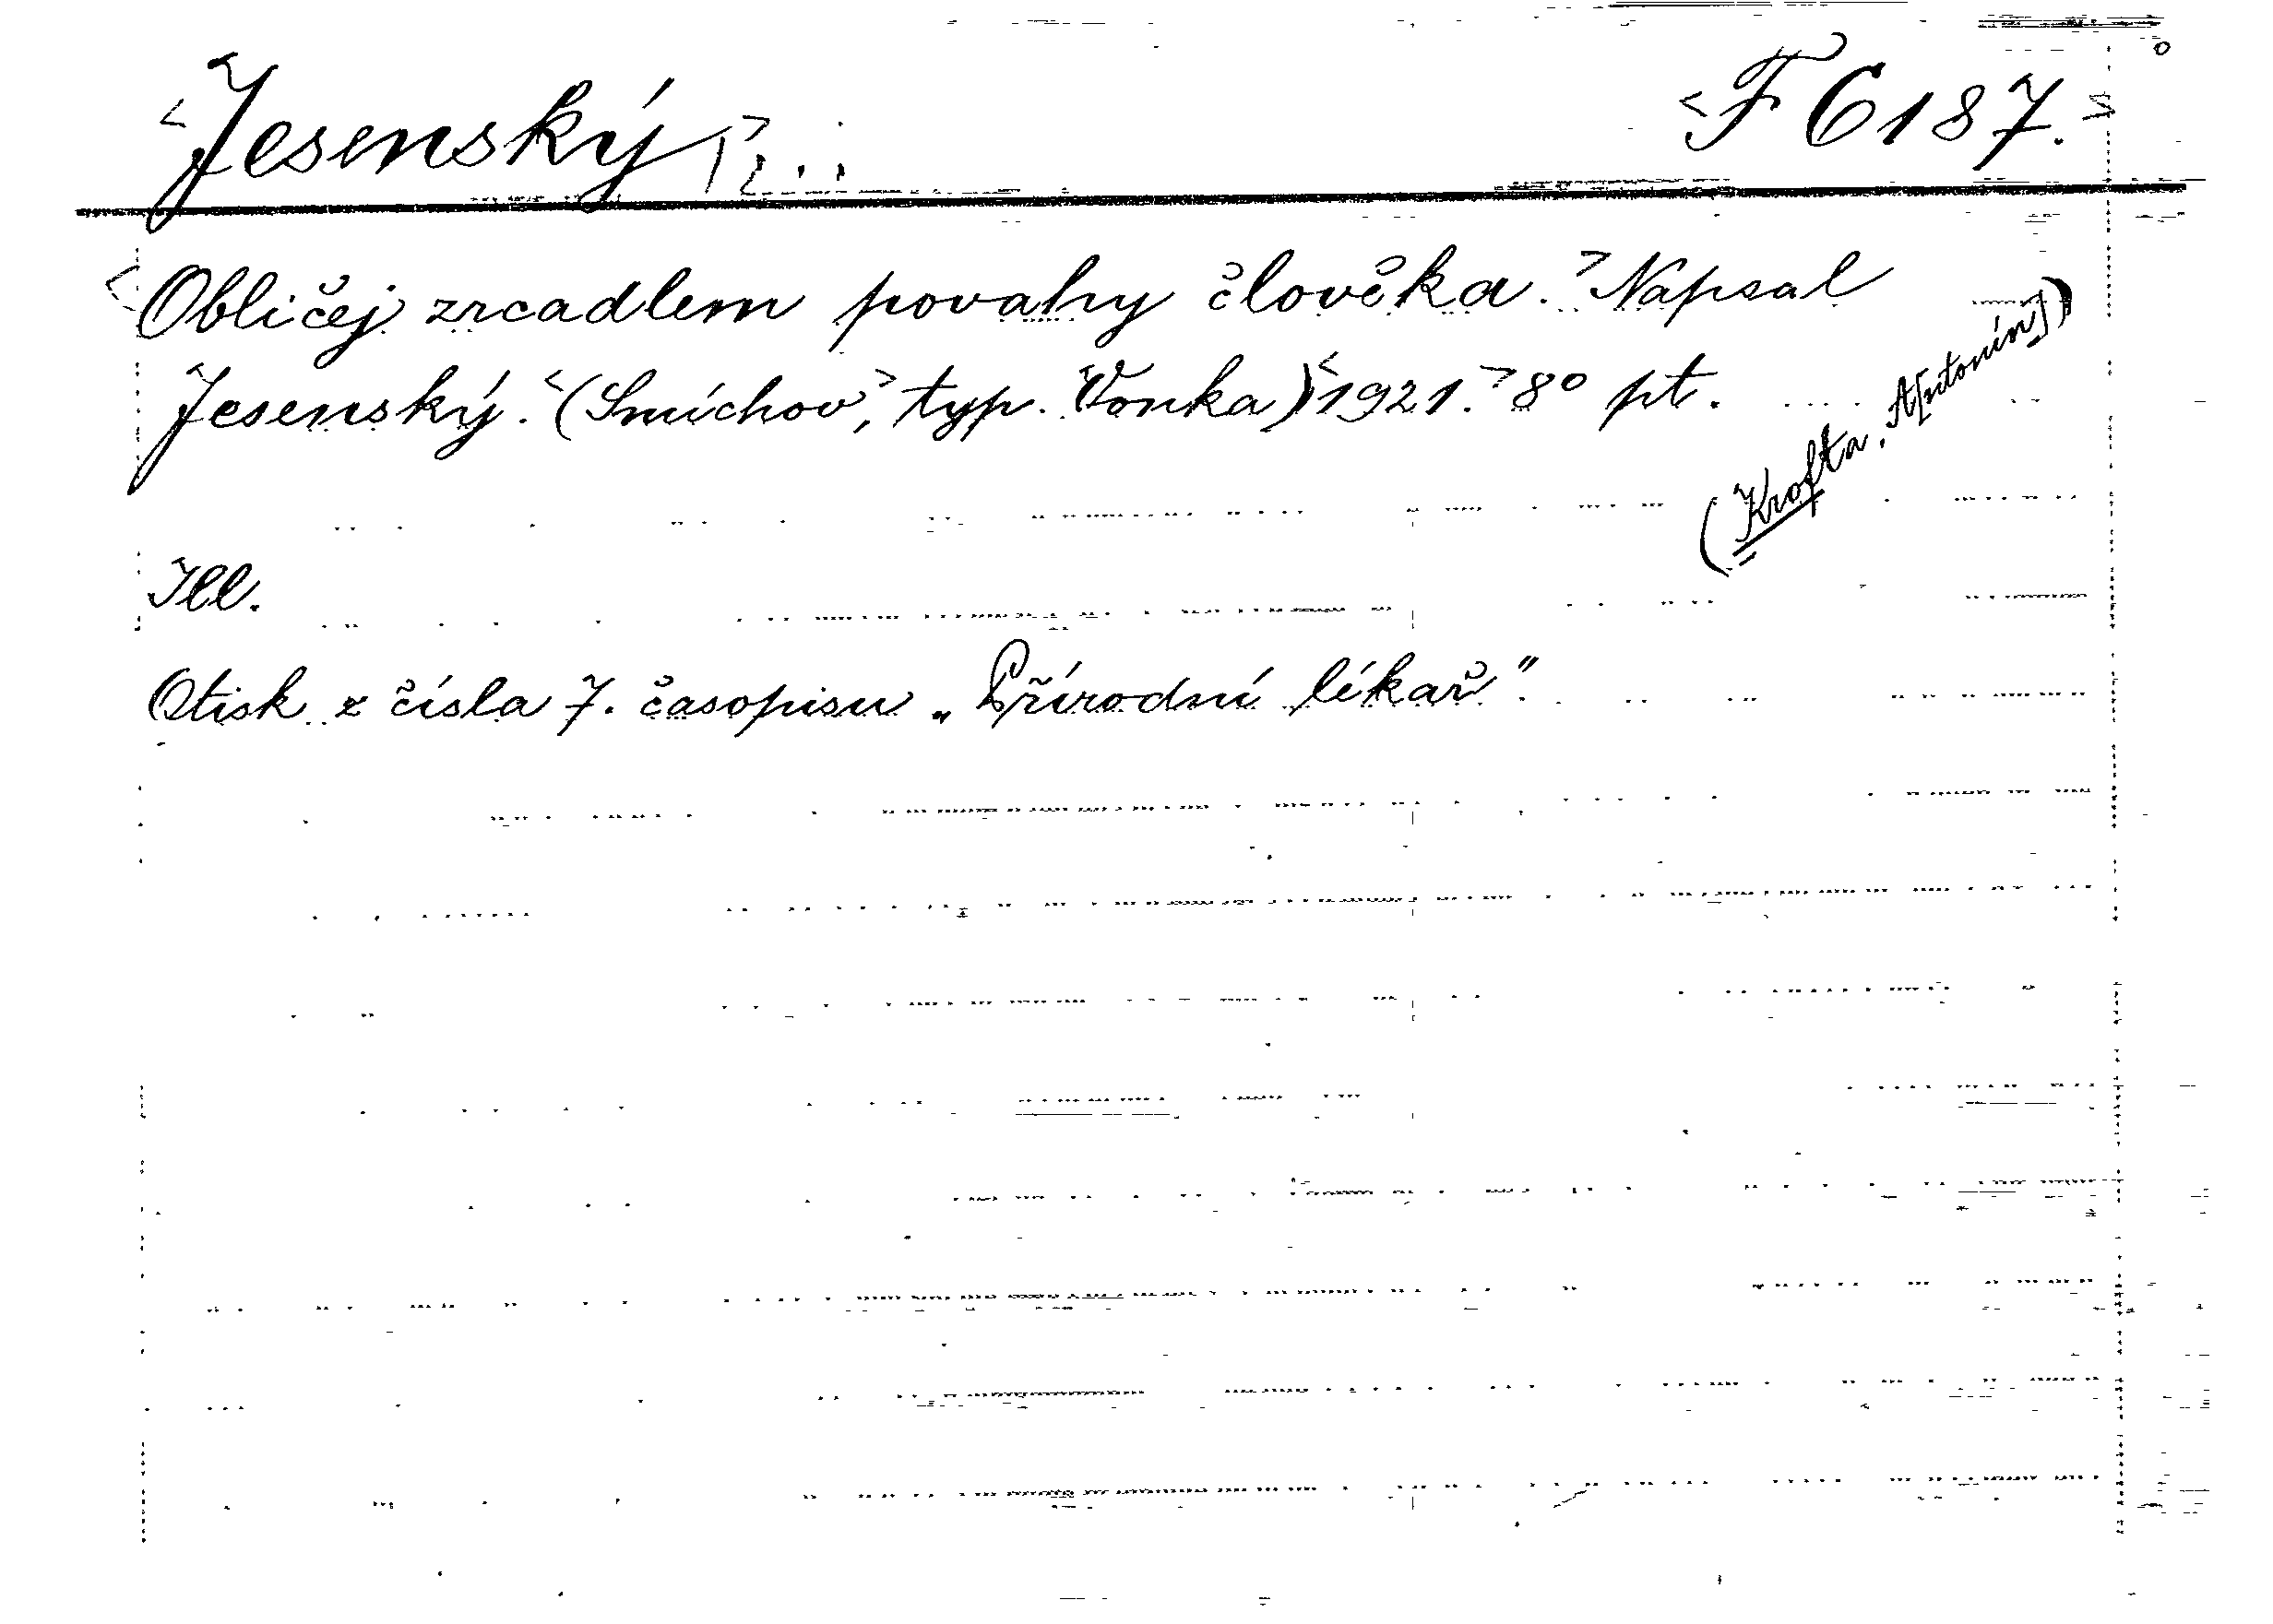 <Jesenský,>... <F 6187.>
<Obličej zrcadlem povahy člověka.> Napsal
Jesenský. <(Smíchov,> typ. Vonka) <1921.> 8° pt.
(Krofta, A[ntonín])
Ill.
Otisk z čísla 7. časopisu „Přírodní lékař".